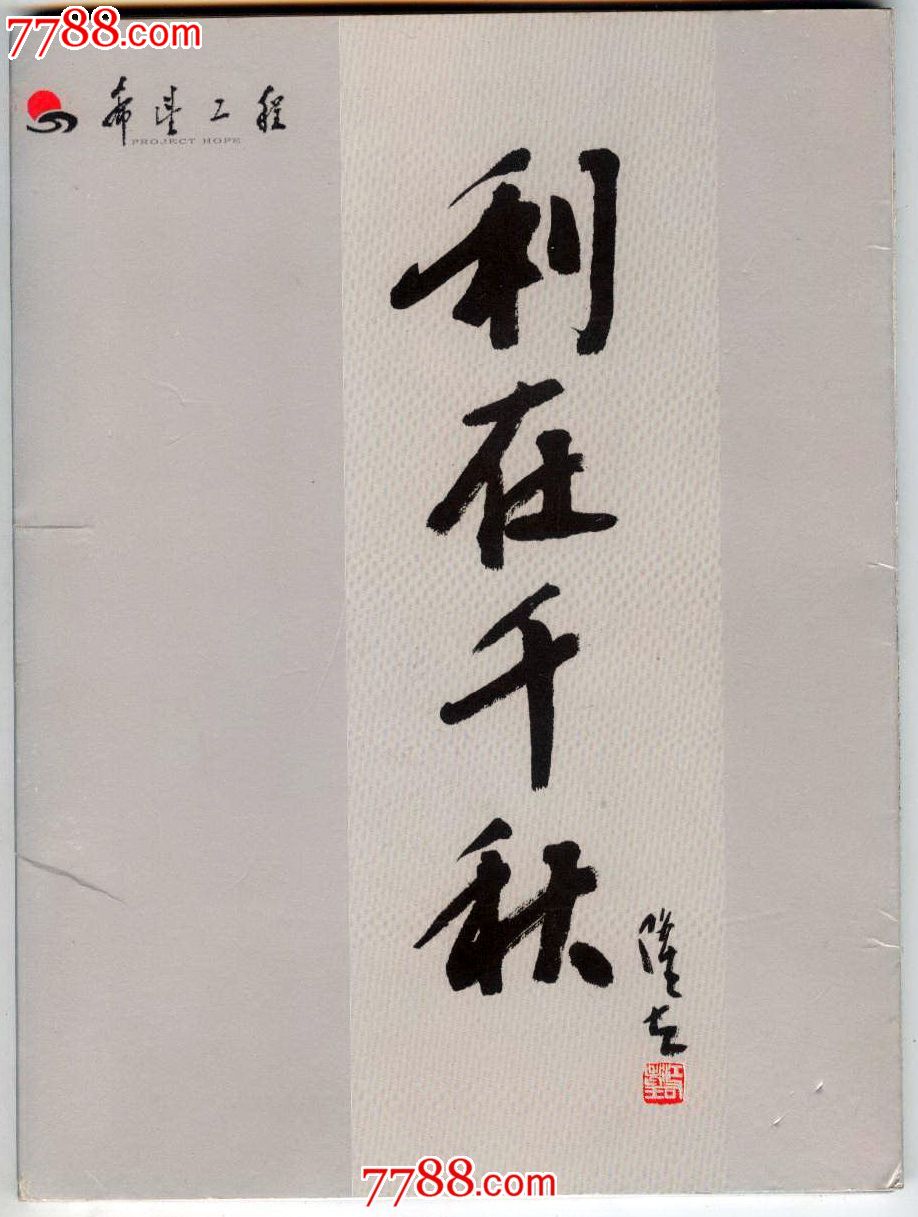 7788.com
希望工程
PROJECT HOPE
利在千秋
7788.com